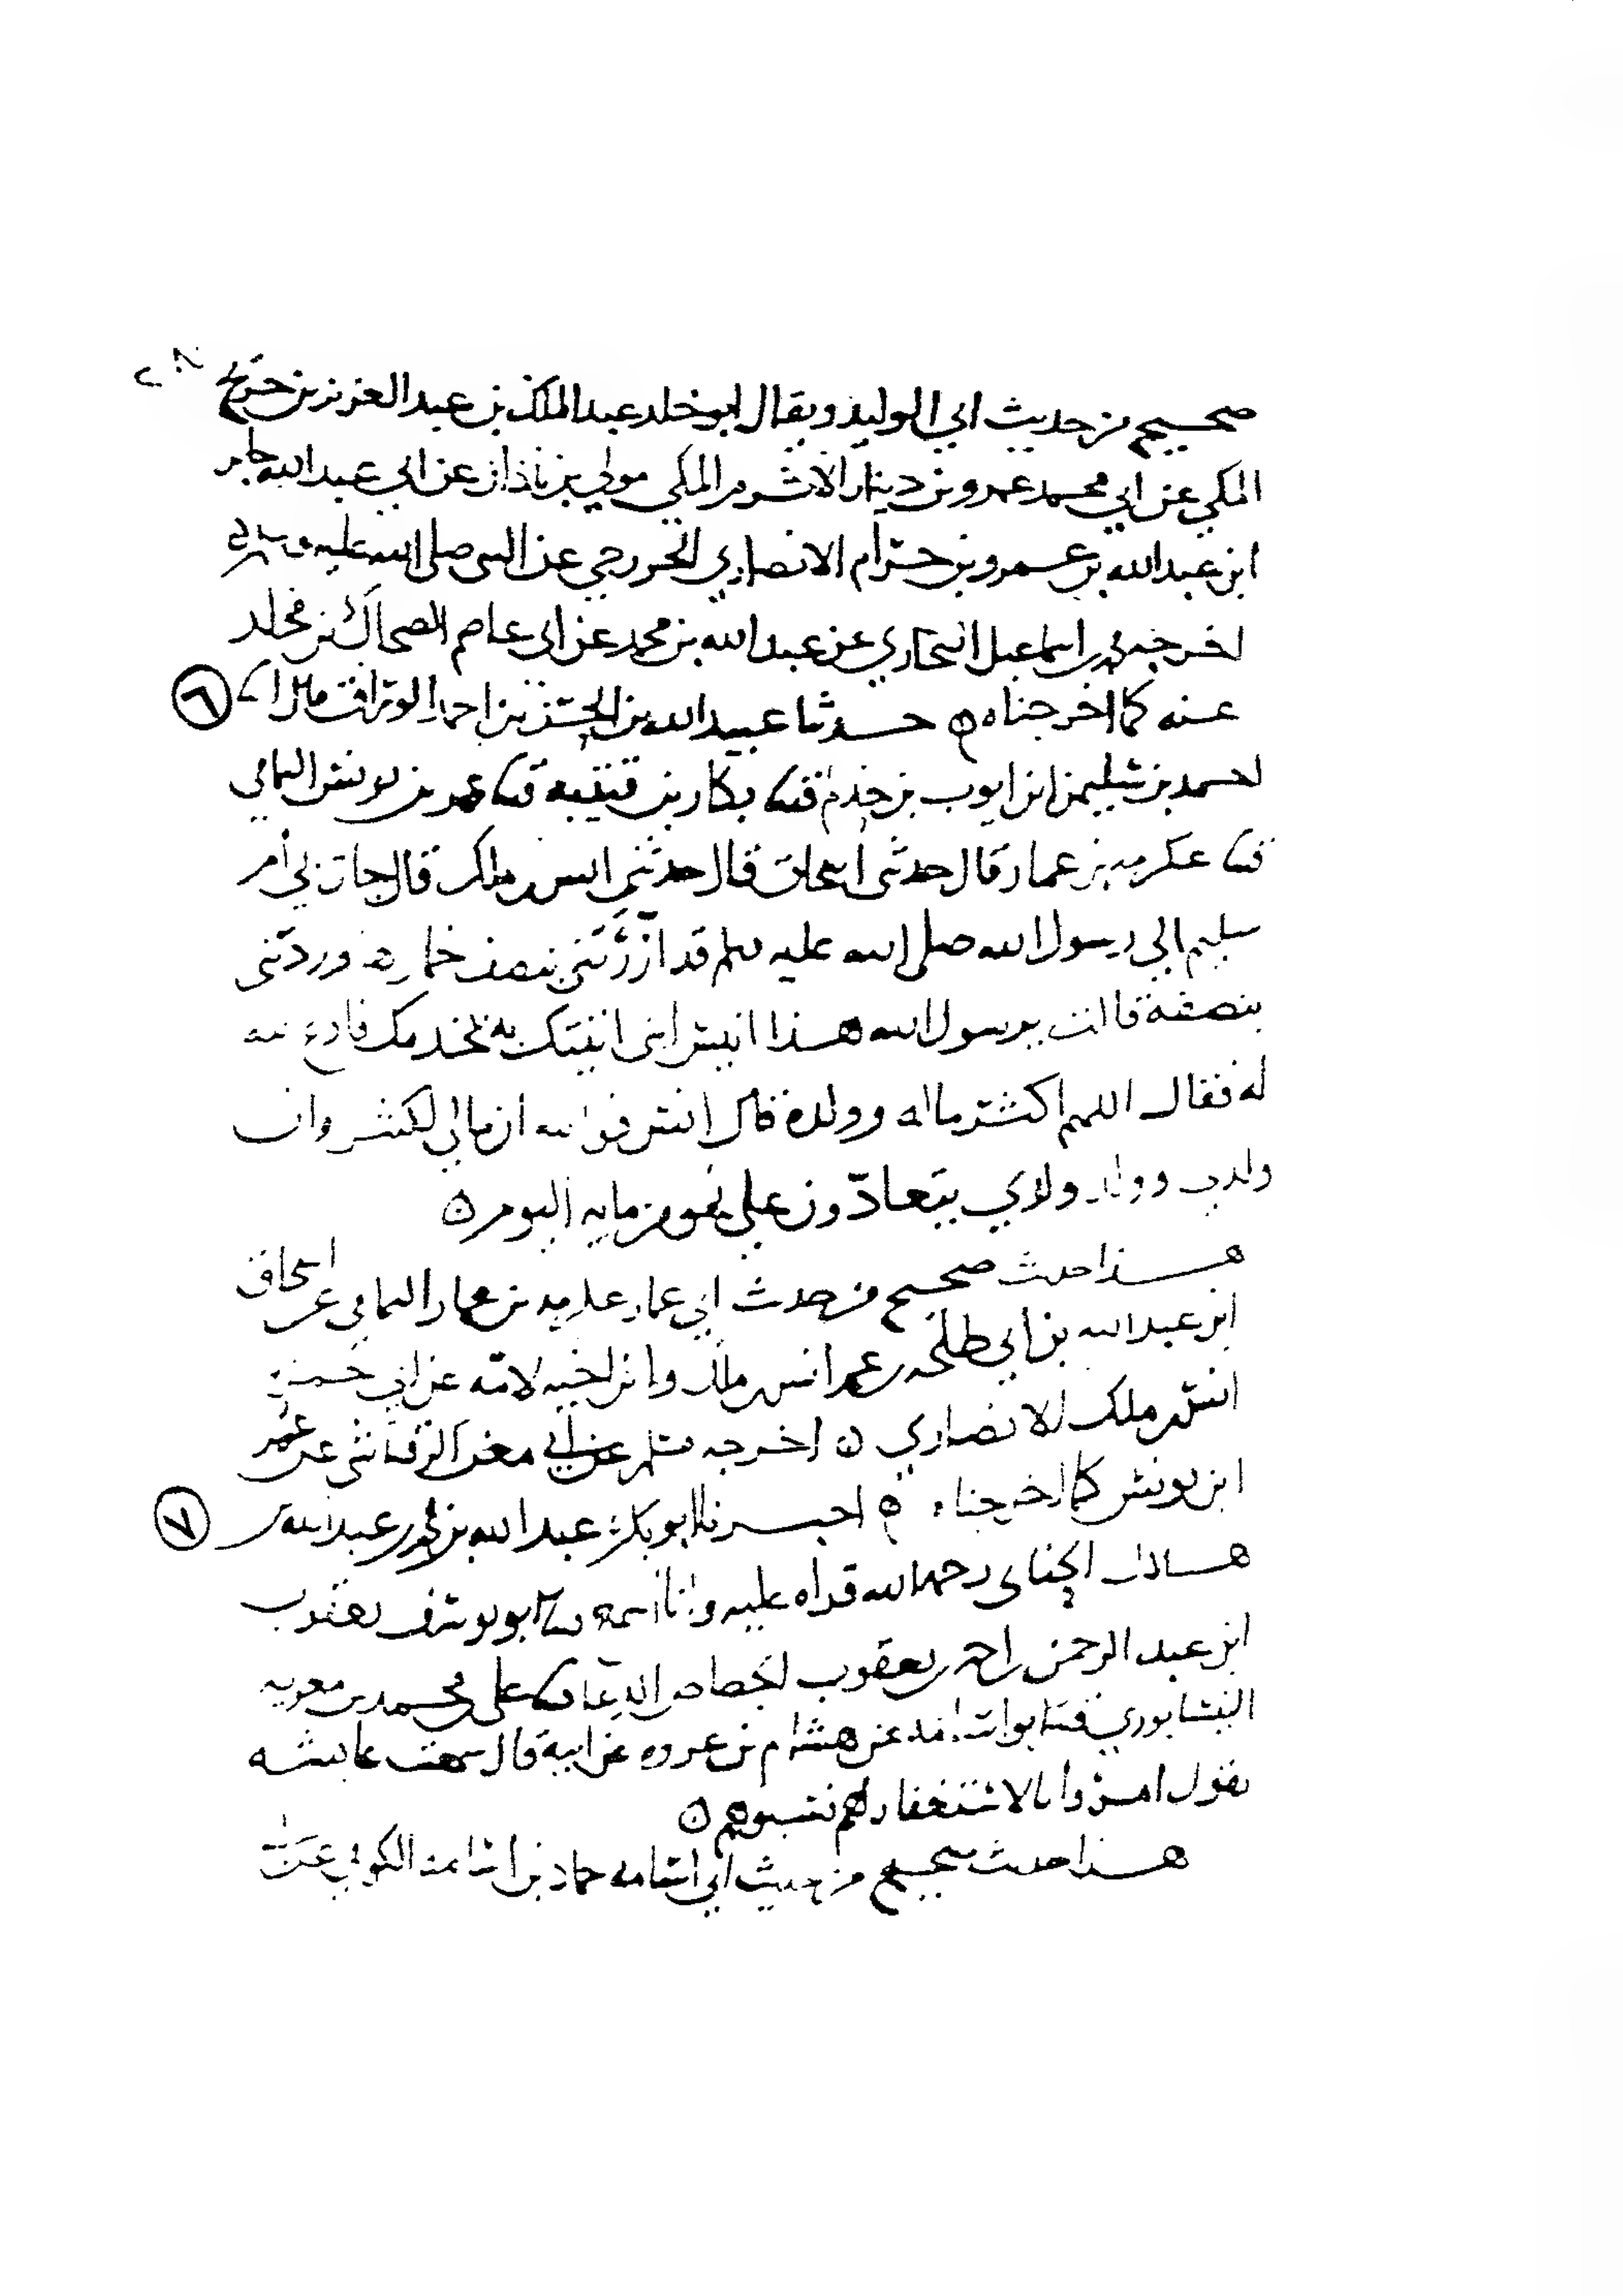 صحيح من حديث ابي الوليد ويقال ابو خلد عبد الملك بن عبد العزيز بن جريج
المكي عن ابي محمد عمرو بن دينار الاثرم المكي مولي بن باذان عن ابي عبد الله جابر
ابن عبد الله بن عمرو بن حرام الانصاري الخزرجي عن النبي صلى الله عليه وسلم
اخرجه محمد بن اسماعيل البخاري عن عبد الله بن محمد عن ابي عاصم الضحاك بن مخلد
عنه كما اخرجناه ه حدثنا عبيد الله بن الحسن بن احمد الوراق ٦
احمد بن سليمن ابن ايوب بن حذلم بكار بن قتيبه عمر بن يونس اليمامي
عكرمه بن عمار قال حدثني اسحاق قال حدثني انس بن ملك قال جات بي أم
سليم الي رسول الله صلى الله عليه وسلم قد ازّرتني بنصف خمارها وردتني
بنصفة قالت يرسول الله هذا انيس ابني اتيتك به يخدمك فادع الله
له فقال اللهم اكثر ماله وولده قال انس فوالله ان مالي لكثير وان
ولدي وولد ولدي يتعادّون علي نحو من مايه اليوم ه
هذا حديث صحيح من حديث ابي عمار عكرمه بن عمار اليمامي عن اسحاق
ابن عبد الله بن ابي طلحه عن عمه انس بن ملك وابن اخيه لامه عن ابي حمزة
انس بن ملك الانصاري ه اخرجه مسلم عن ابي معن الرقاشي عن عمر
ابن يونس كما اخرجناه ه اخبرنا ابو بكر عبد الله بن محمد بن عبد الله بن ٧
هلال الحنائي رحمه الله قراه عليه وانا اسمع ابو يوسف يعقوب
ابن عبد الرحمن بن احمد بن يعقوب الجصاص الدعا علي بن محمد بن معويه
النيسابوري ابو اسامه عن هشام بن عروه عن ابيه قال سمعت عايشه
تقول امروا بالاستغفار لهم فسبوهم ه
هذا حديث صحيح من حديث ابي اسامه حماد بن اسامة الكوفي عن